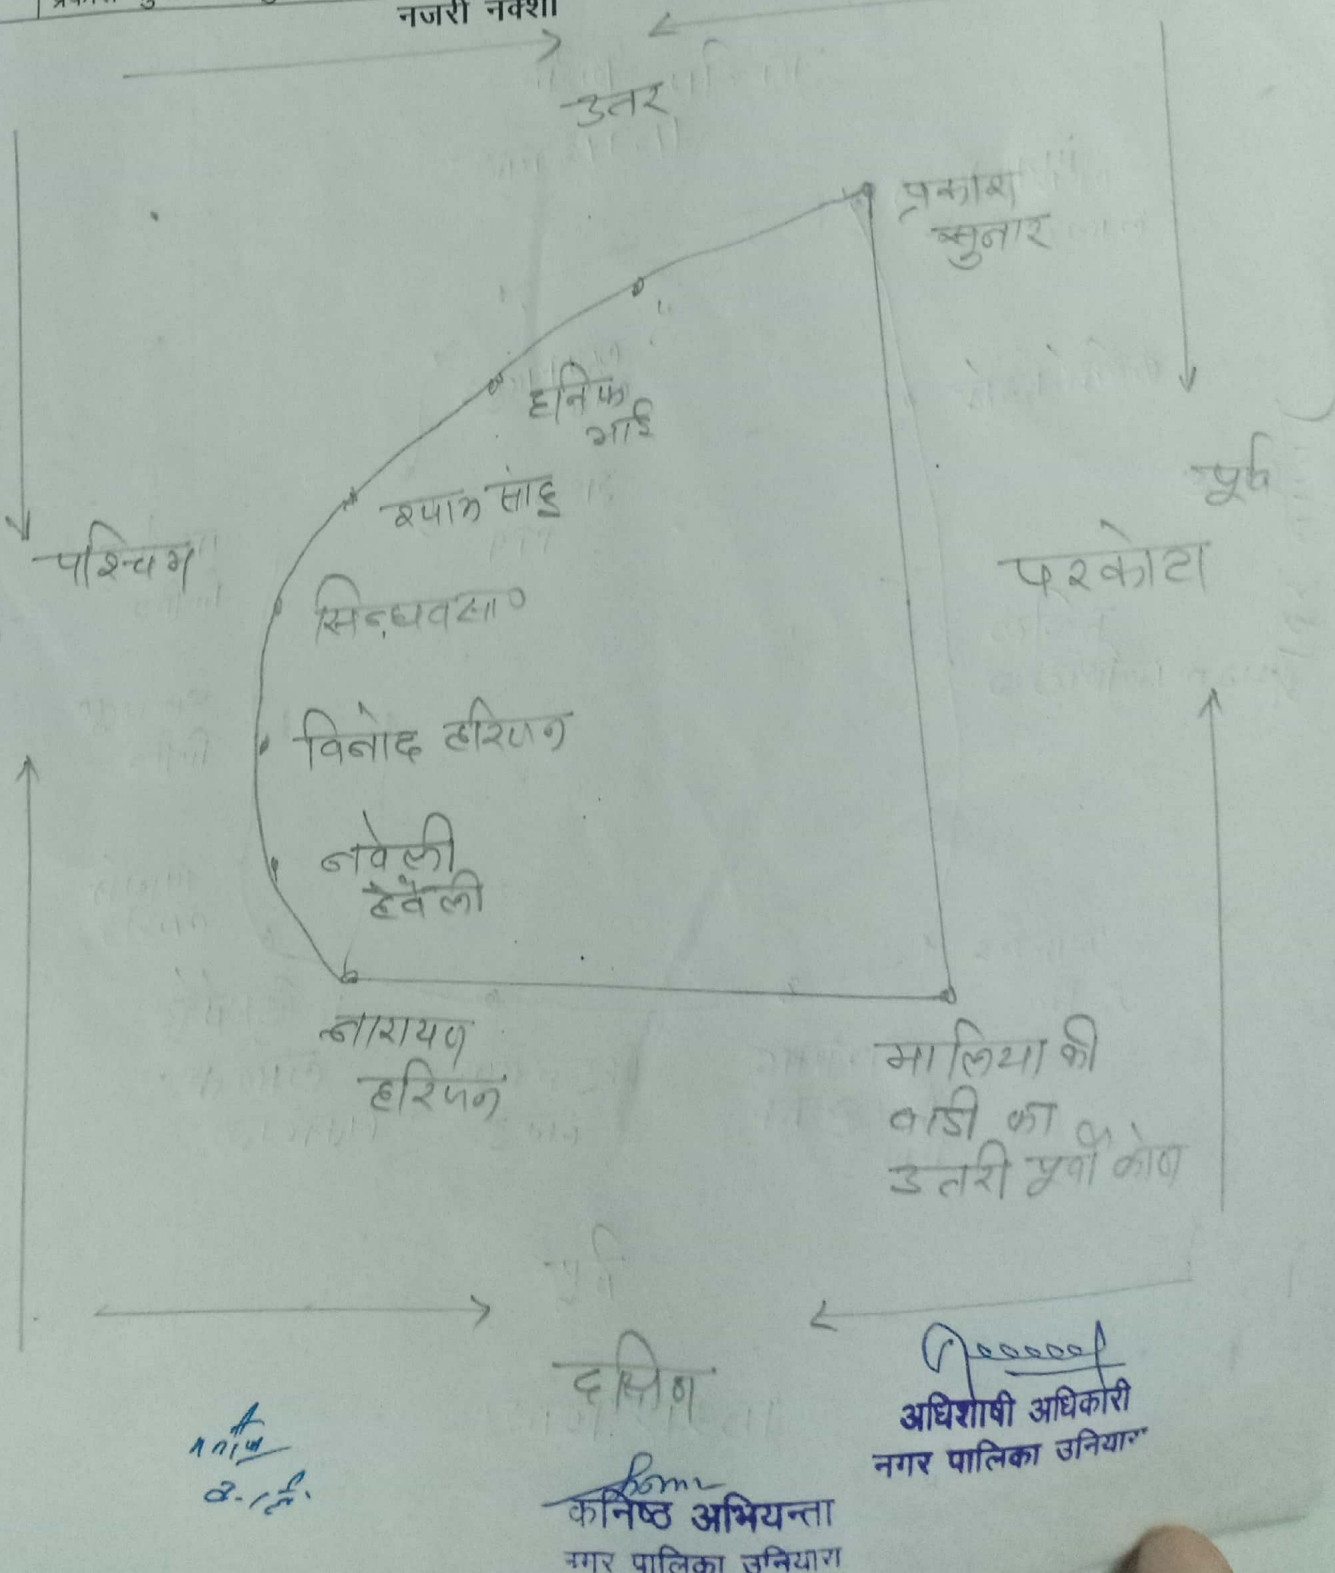 नजरी नक्शा
उतर
प्रकाश
सुनार
हनिफ
भाई
श्याम साहु
पूर्व
पश्चिम
परकोटा
विनोद हरिजन
नवेली
हवेली
नारायण
हरिजन
मालिया की
बाडी का
उतरी पूर्वी कोण
दक्षिण
अधिशाषी अधिकारी
नगर पालिका उनियारा
कनिष्ठ अभियन्ता
नगर पालिका उनियारा